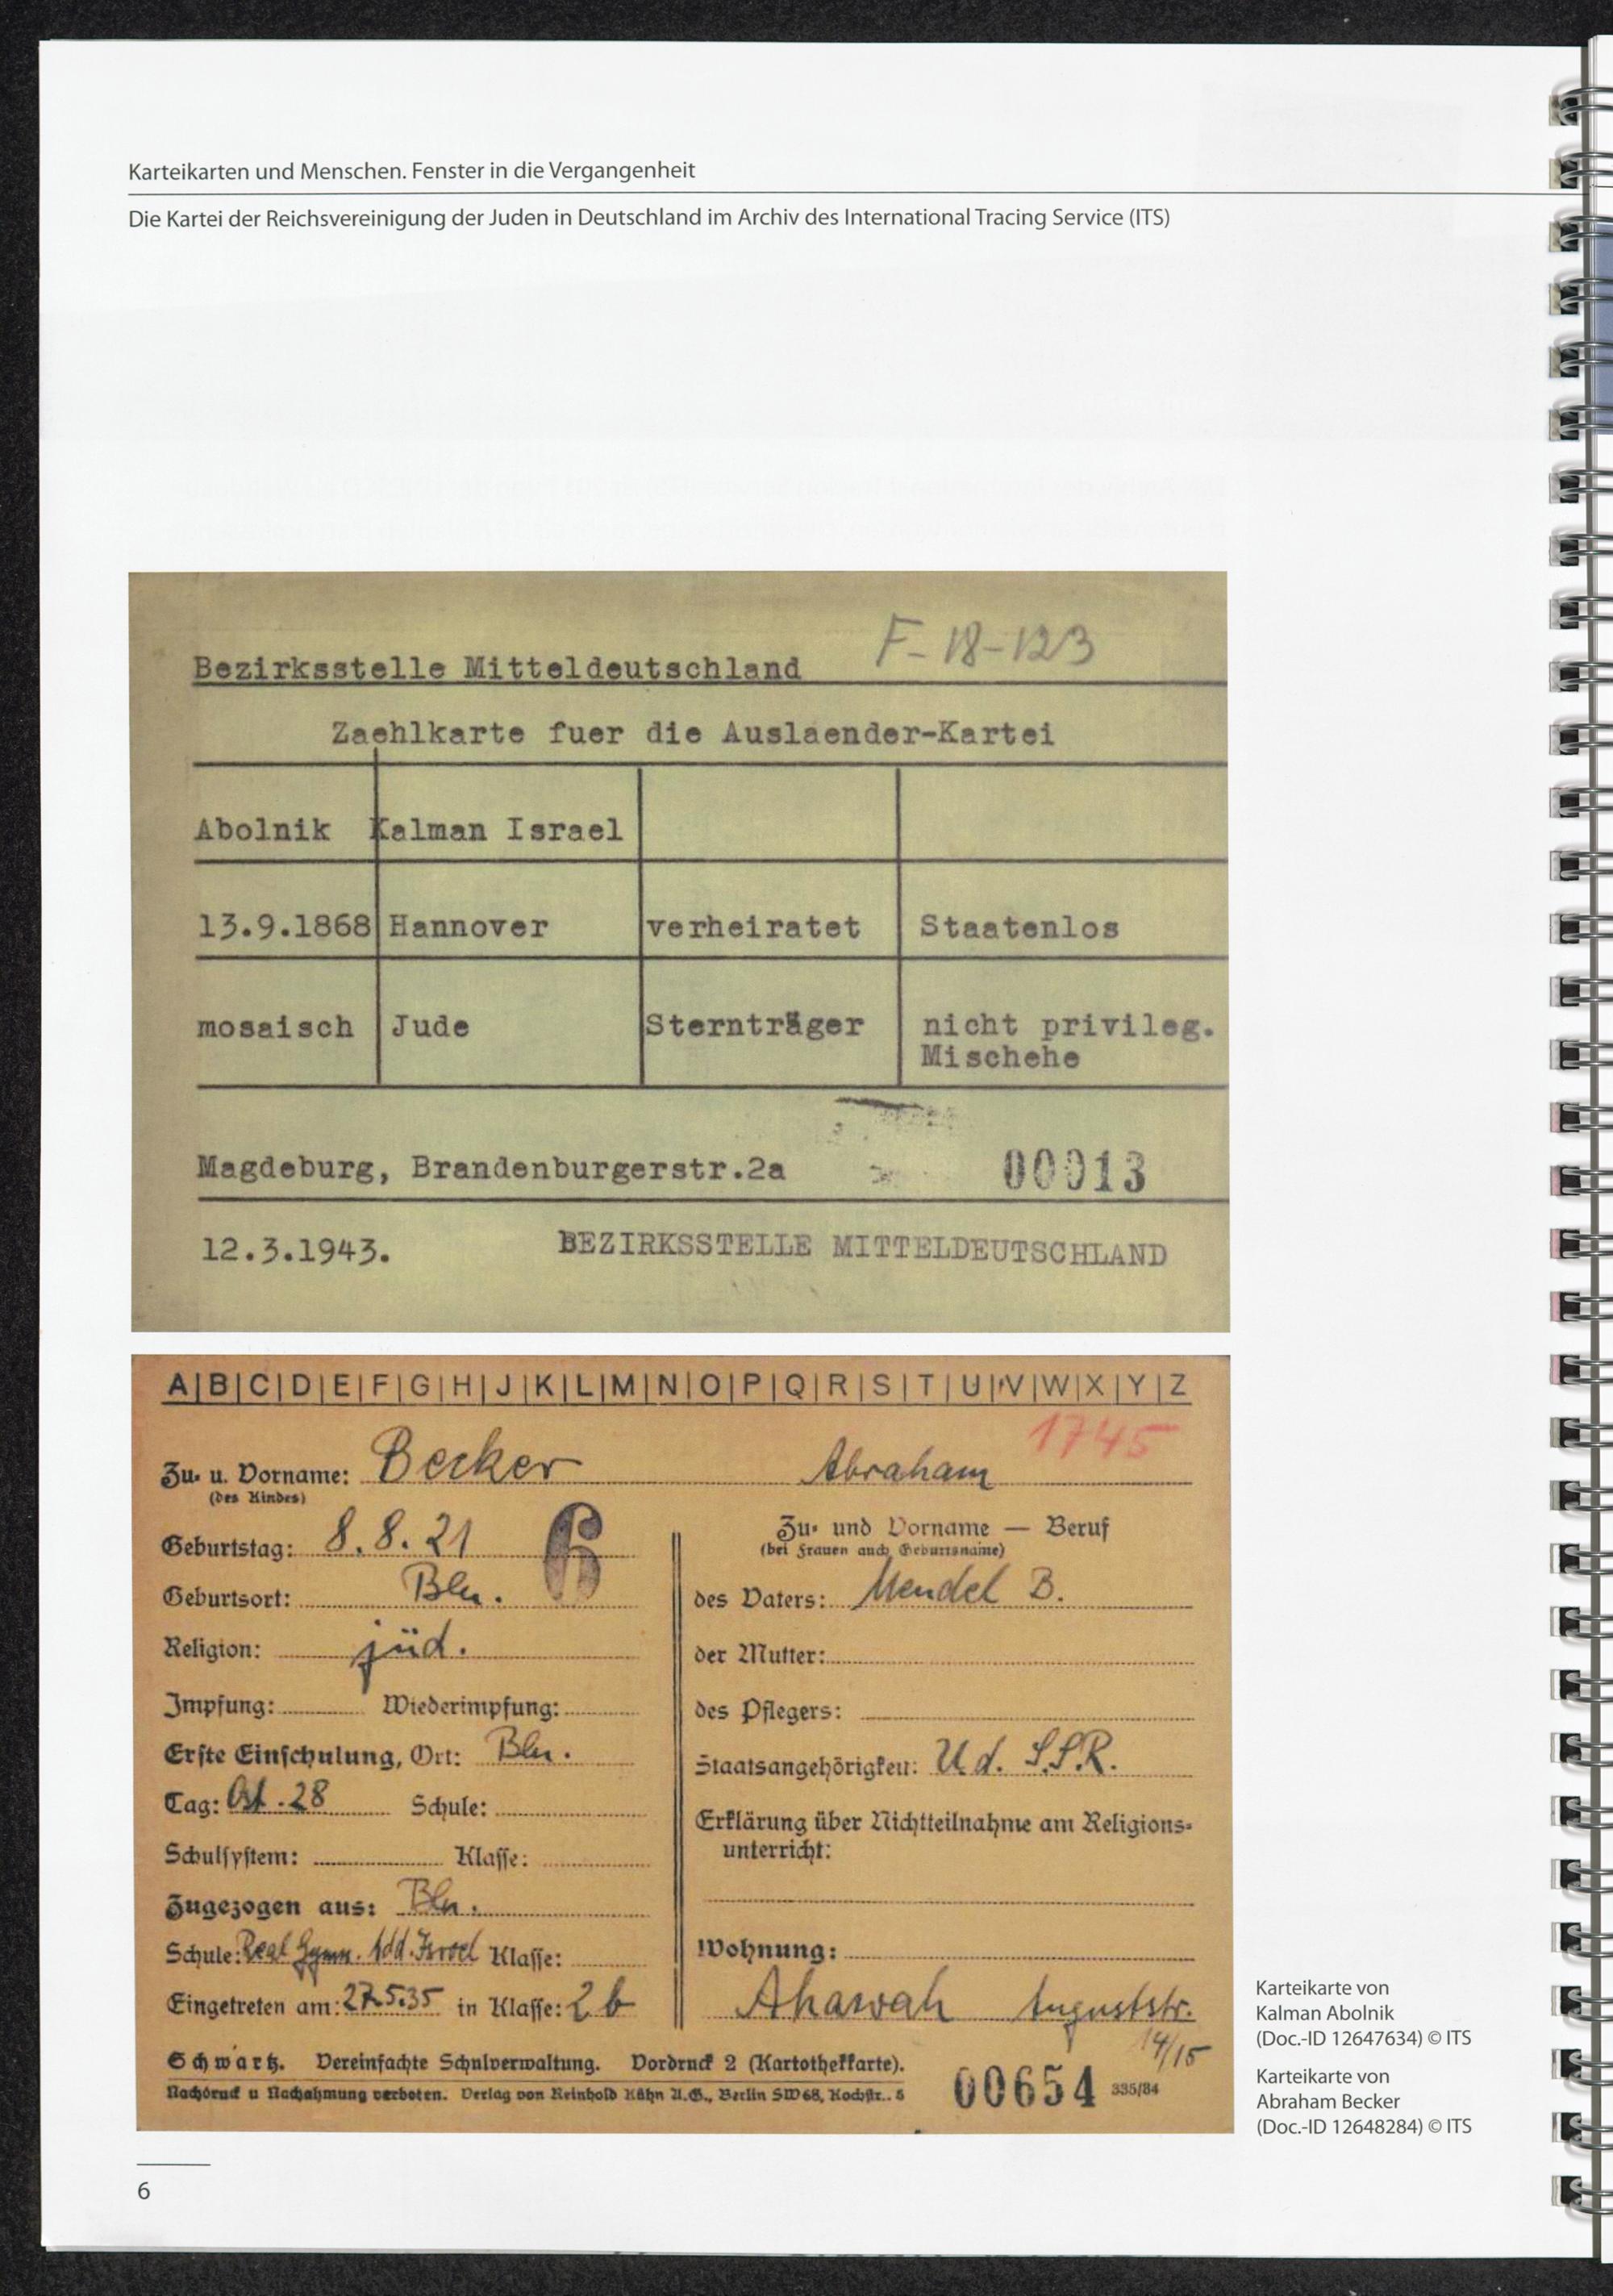 Karteikarten und Menschen. Fenster in die Vergangenheit
Die Kartei der Reichsvereinigung der Juden in Deutschland im Archiv des International Tracing Service (ITS)
Bezirksstelle Mitteldeutschland F-18-123
Zaehlkarte fuer die Auslaender-Kartei
Abolnik Kalman Israel
13.9.1868 Hannover verheiratet Staatenlos
mosaisch Jude Sternträger nicht privileg.
Mischehe
Magdeburg, Brandenburgerstr.2a 00013
12.3.1943. BEZIRKSSTELLE MITTELDEUTSCHLAND
A|B|C|D|E|F|G|H|J|K|L|M|N|O|P|Q|R|S|T|U|V|W|X|Y|Z
1745
Zu- u. Vorname: Becker Abraham
(des Kindes)
Geburtstag: 8.8.21
6
Geburtsort: Bln.
Religion: jüd.
Impfung: Wiederimpfung:
Erste Einschulung, Ort: Bln.
Tag: Ost.28 Schule:
Schulsystem: Klasse:
Zugezogen aus: Bln.
Schule: Real Gymn. Add. Isroel Klasse:
Eingetreten am: 27.5.35 in Klasse: 2b
Zu- und Vorname — Beruf
(bei Frauen auch Geburtsname)
des Vaters: Mendel B.
der Mutter:
des Pflegers:
Staatsangehörigkeit: U.d. S.S.R.
Erklärung über Nichtteilnahme am Religions-
unterricht:
Wohnung:
Ahawah Auguststr.
14/15
Schwartz. Vereinfachte Schulverwaltung. Vordruck 2 (Kartothekkarte).
Nachdruck u Nachahmung verboten. Verlag von Reinhold Kühn A.G., Berlin SW 68, Kochstr. 5
00654 335/34
Karteikarte von
Kalman Abolnik
(Doc.-ID 12647634) © ITS
Karteikarte von
Abraham Becker
(Doc.-ID 12648284) © ITS
6